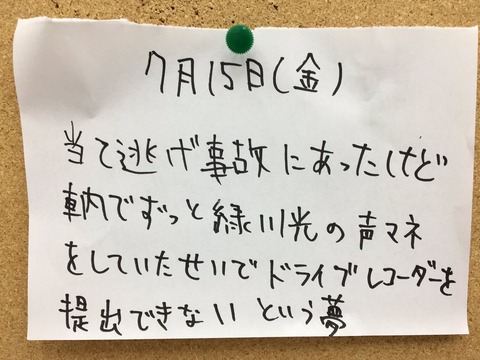 7月15日(金)
当て逃げ事故にあったけど
車内でずっと緑川光の声マネ
をしていたせいでドライブレコーダーを
提出できないという夢